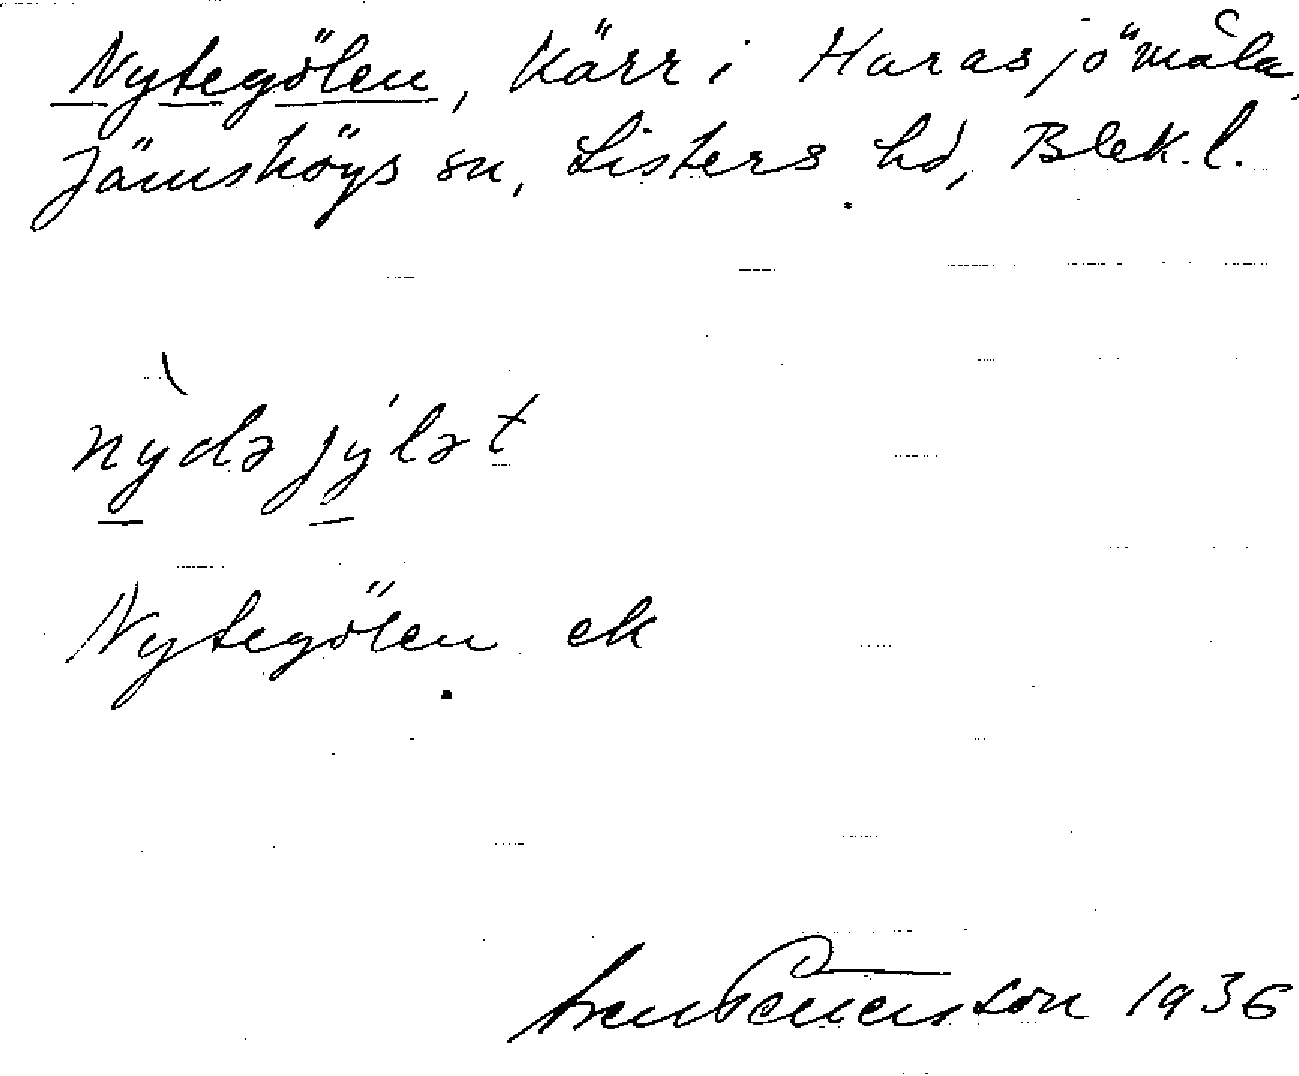 Nytegölen, Kärr i Harasjömåla,
Jämshögs sn, Listers hd, Blek. l.
nỳdə jýlət
Nytegölen ek
Sven Benson 1936